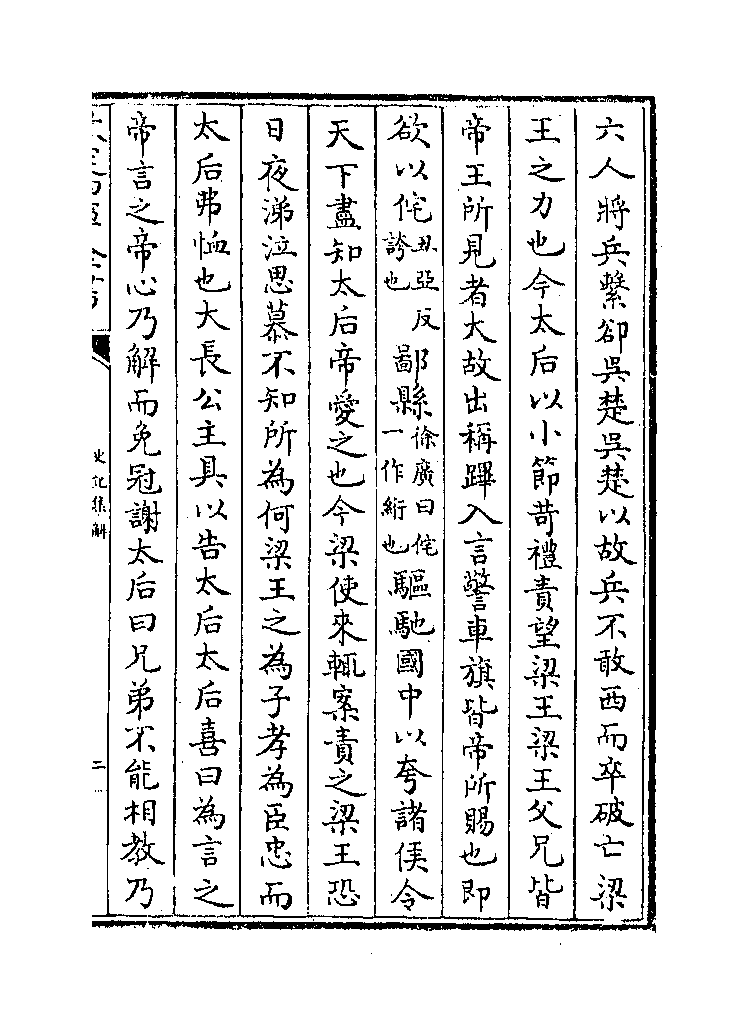 六人將兵擊卻吳楚吳楚以故兵不敢西而卒破亡梁
王之力也今太后以小節苛禮責望梁王梁王父兄皆
帝王所見者大故出稱蹕入言警車旗皆帝所賜也即
欲以侘丑亞反誇也鄙縣徐廣曰侘一作紨也驅馳國中以夸諸侯令
天下盡知太后帝愛之也今梁使來輒案責之梁王恐
日夜涕泣思慕不知所為何梁王之為子孝為臣忠而
太后弗恤也大長公主具以告太后太后喜曰為言之
帝言之帝心乃解而免冠謝太后曰兄弟不能相教乃
史記集解
二